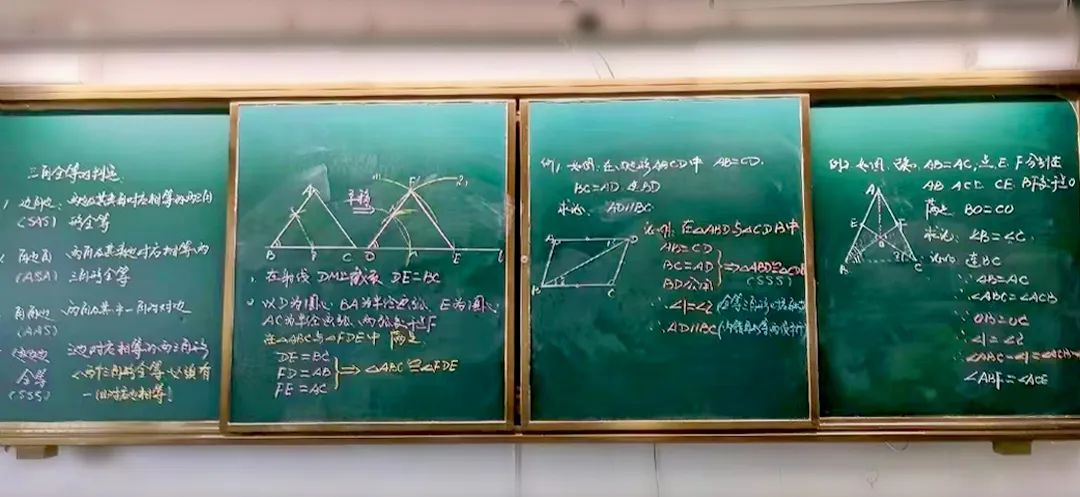 三角全等的判定
1. 边角边:两边及其夹角对应相等的两三角
(SAS) 形全等
角边角 两角及其夹边对应相等的
(ASA) 三角形全等
角角边 两角及其中一角的对边
(AAS)
边边边 三边对应相等的两三角形
全等 <两三角形全等必须有
(SSS) 一组对应边相等!
A
平移
F
B C D E
1. 在射线 DM上截取 DE=BC
2. 以D为圆心 BA为半径画弧, E为圆心,
AC为半径画弧, 两弧交于点F
在△ABC与△FDE中
DE=BC
FD=AB ⇒ △ABC≌△FDE
FE=AC
例1, 如图: 在四边形ABCD中 AB=CD.
BC=AD 连BD
求证: AD∥BC.
A D
B C
证明: 在△ABD与△CDB中
AB=CD
BC=AD ⇒△ABD≌△CDB
BD公用 (SSS)
∴ ∠1=∠2
∴ AD∥BC (内错角相等两直线平行)
例2 如图, AB=AC, 点E、F分别在
AB AC上 CE BF交于点O
BO=CO
求证: ∠B=∠C.
A
E F
B C
证明: 连BC
∵ AB=AC
∴ ∠ABC=∠ACB
∵ OB=OC
∴ ∠1=∠2
∴ ∠ABC-∠1=∠ACB
∠ABF=∠ACE